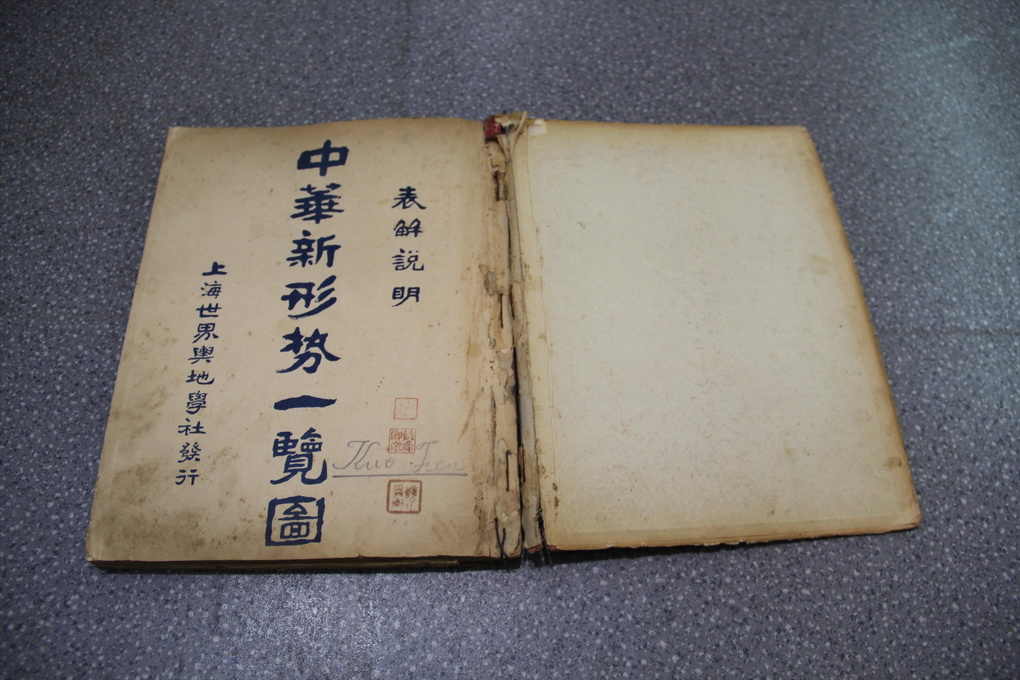 表解説明
中華新形勢一覽圖
上海世界輿地學社發行
Kuo Fen